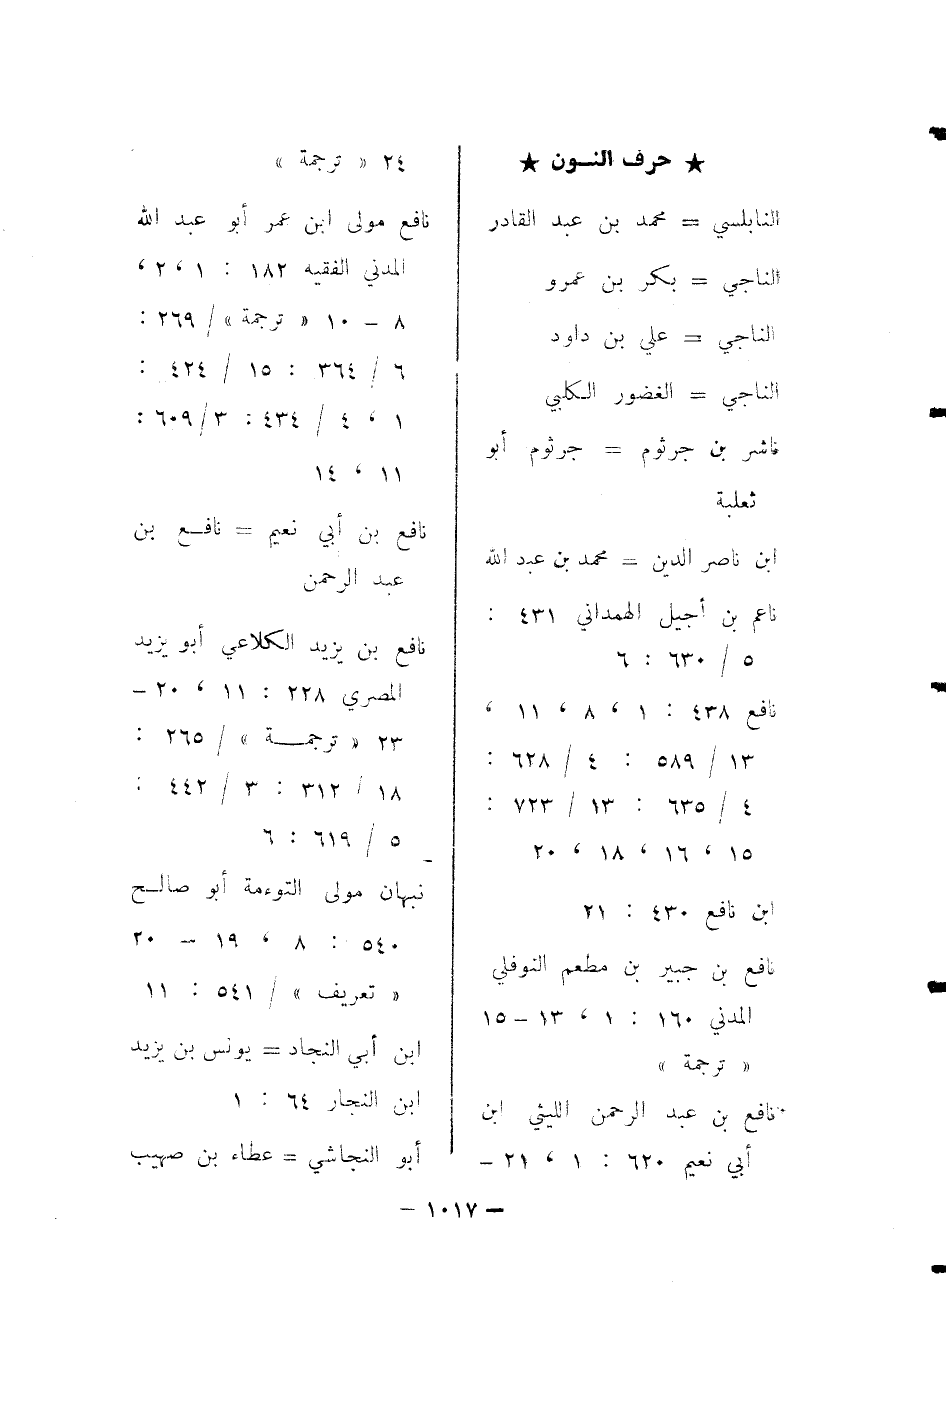 ★ حرف النون ★
النابلسي = محمد بن عبد القادر
الناجي = بكر بن عمرو
الناجي = علي بن داود
الناجي = الغضور الكلبي
ناشر بن جرثوم = جرثوم أبو
ثعلبة
ابن ناصر الدين = محمد بن عبد الله
ناعم بن أجيل الهمداني ٤٣١ :
٥ / ٦٣٠ : ٦
نافع ٤٣٨ : ١ ، ٨ ، ١١ ،
١٣ / ٥٨٩ : ٤ / ٦٢٨ :
٤ / ٦٣٥ : ١٣ / ٧٢٣ :
١٥ ، ١٦ ، ١٨ ، ٢٠
ابن نافع ٤٣٠ : ٢١
نافع بن جبير بن مطعم النوفلي
المدني ١٦٠ : ١ ، ١٣ – ١٥
« ترجمة »
نافع بن عبد الرحمن الليثي ابن
أبي نعيم ٦٢٠ : ١ ، ٢١ –
٢٤ « ترجمة »
نافع مولى ابن عمر أبو عبد الله
المدني الفقيه ١٨٢ : ١ ، ٢ ،
٨ – ١٠ « ترجمة » / ٢٦٩ :
٦ / ٣٦٤ : ١٥ / ٤٢٤ :
١ ، ٤ / ٤٣٤ : ٣ / ٦٠٩ :
١١ ، ١٤
نافع بن أبي نعيم = نافع بن
عبد الرحمن
نافع بن يزيد الكلاعي أبو يزيد
المصري ٢٢٨ : ١١ ، ٢٠ –
٢٣ « ترجمة » / ٢٦٥ :
١٨ / ٣١٢ : ٣ / ٤٤٢ :
٥ / ٦١٩ : ٦
نبهان مولى التوءمة أبو صالح
٥٤٠ : ٨ ، ١٩ – ٢٠
« تعريف » / ٥٤١ : ١١
ابن أبي النجاد = يونس بن يزيد
ابن النجار ٦٤ : ١
أبو النجاشي = عطاء بن صهيب
– ١٠١٧ –